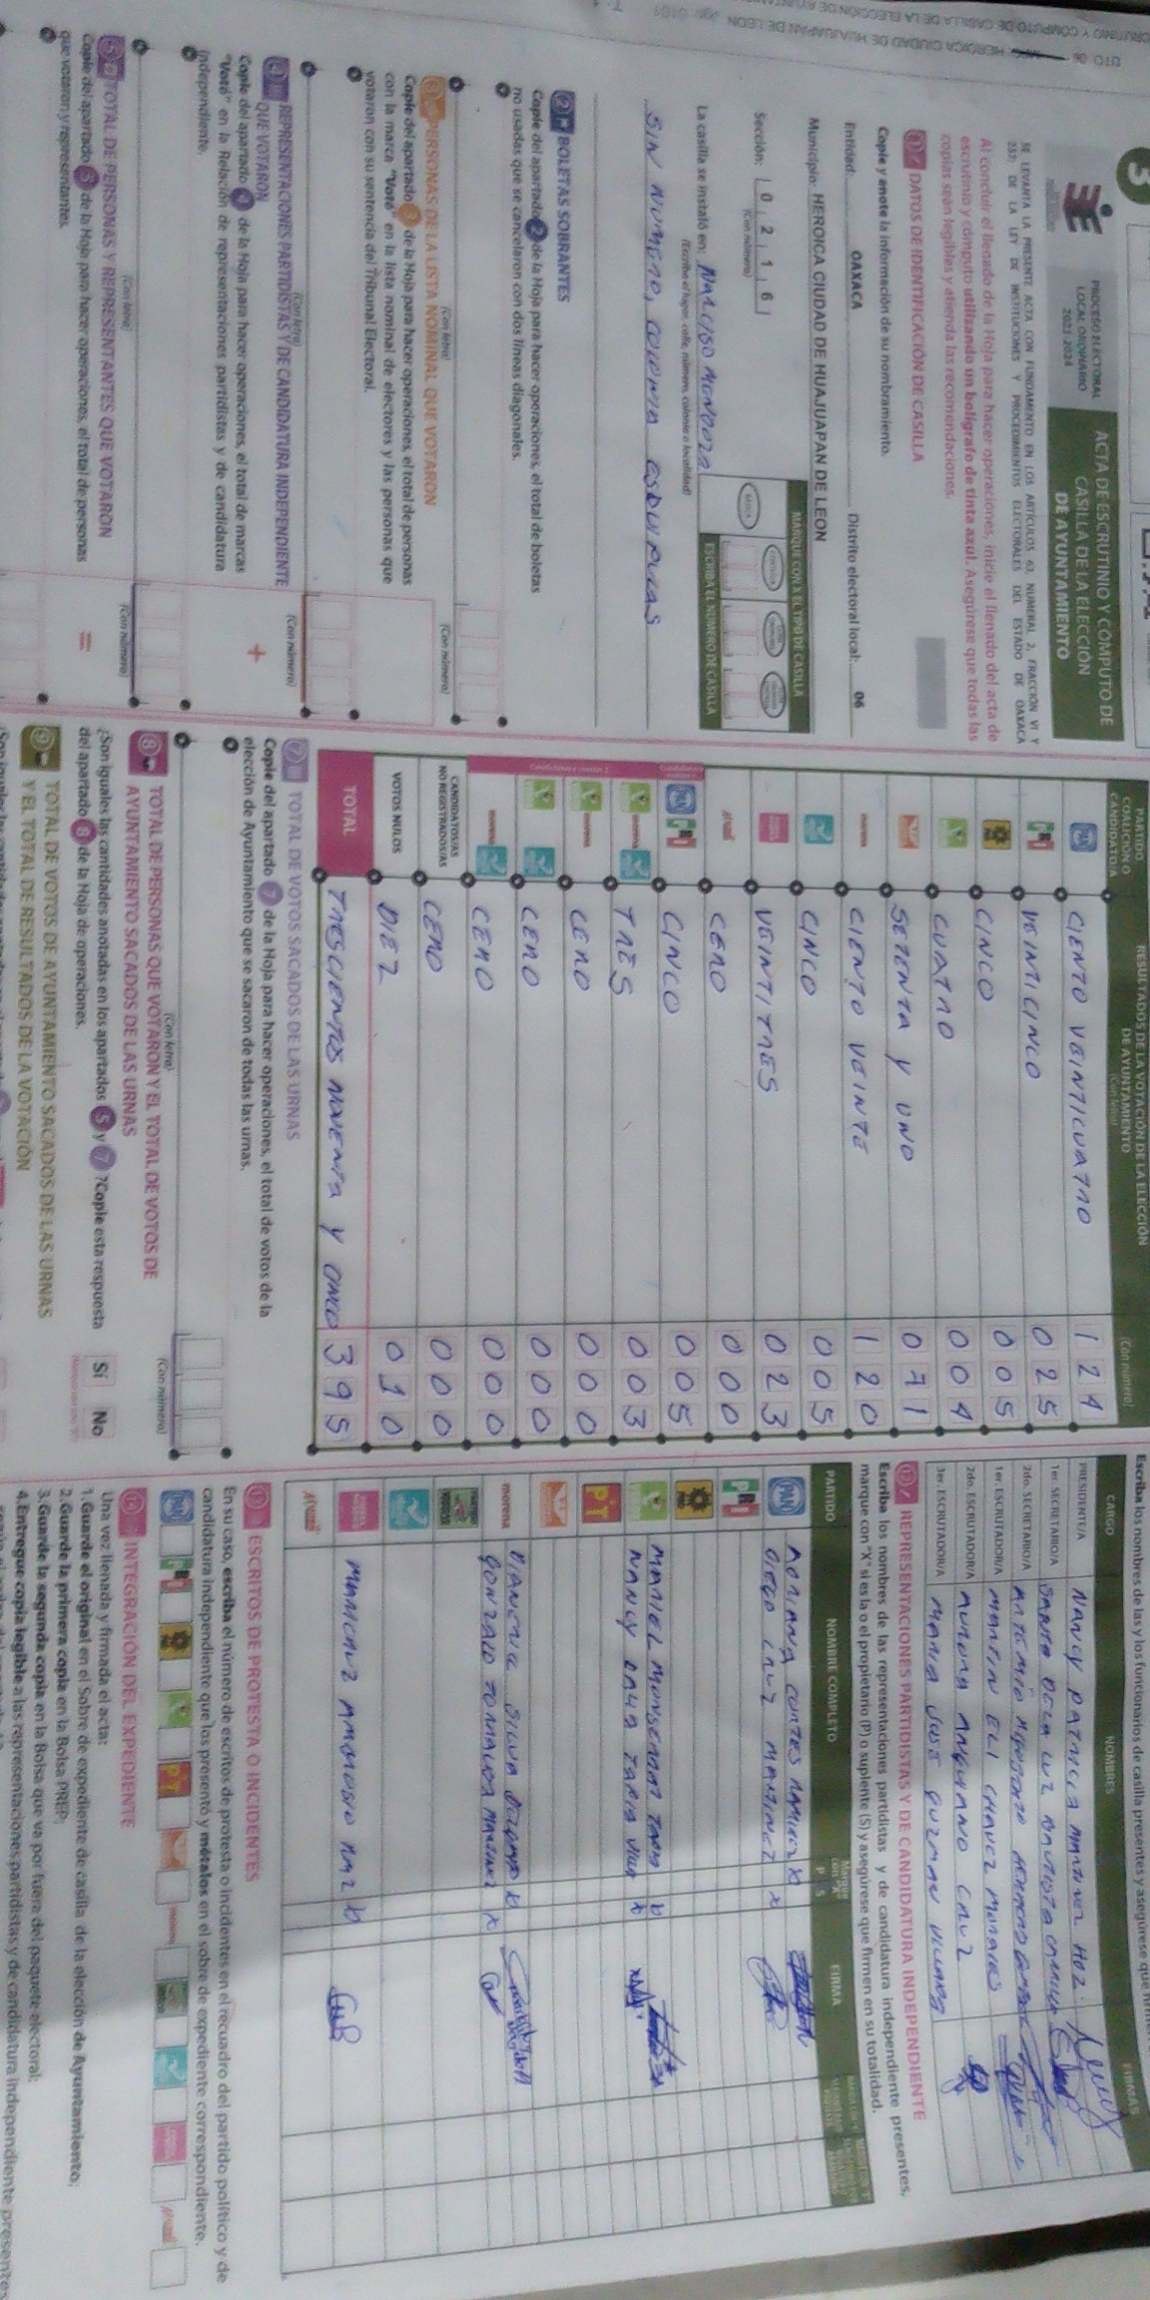 3
PROCESO ELECTORAL
LOCAL ORDINARIO
2023-2024
ACTA DE ESCRUTINIO Y CÓMPUTO DE
CASILLA DE LA ELECCIÓN
DE AYUNTAMIENTO
SE LEVANTA LA PRESENTE ACTA CON FUNDAMENTO EN LOS ARTÍCULOS 63, NUMERAL 2, FRACCIÓN VI Y
237; DE LA LEY DE INSTITUCIONES Y PROCEDIMIENTOS ELECTORALES DEL ESTADO DE OAXACA
Al concluir el llenado de la Hoja para hacer operaciones, inicie el llenado del acta de
escrutinio y cómputo utilizando un bolígrafo de tinta azul. Asegúrese que todas las
copias sean legibles y atienda las recomendaciones.
1 DATOS DE IDENTIFICACIÓN DE CASILLA
Copie y anote la información de su nombramiento.
Entidad: OAXACA Distrito electoral local: 06
Municipio: HEROICA CIUDAD DE HUAJUAPAN DE LEON
Sección: 0 2 1 6
(Con número)
MARQUE CON X EL TIPO DE CASILLA
ESCRIBA EL NÚMERO DE CASILLA
La casilla se instaló en: NARCISO MENDOZA
(Escriba el lugar, calle, número, colonia o localidad)
SIN NUMERO, COLONIA ESQUIPULAS
2 BOLETAS SOBRANTES
Copie del apartado 2 de la Hoja para hacer operaciones, el total de boletas
no usadas que se cancelaron con dos líneas diagonales.
(Con letra) (Con número)
3 PERSONAS DE LA LISTA NOMINAL QUE VOTARON
Copie del apartado 3 de la Hoja para hacer operaciones, el total de personas
con la marca "Votó" en la lista nominal de electores y las personas que
votaron con su sentencia del Tribunal Electoral.
(Con letra) (Con número)
4 REPRESENTACIONES PARTIDISTAS Y DE CANDIDATURA INDEPENDIENTE
QUE VOTARON
Copie del apartado 4 de la Hoja para hacer operaciones, el total de marcas
"Votó" en la Relación de representaciones partidistas y de candidatura
independiente.
+
(Con letra) (Con número)
5 TOTAL DE PERSONAS Y REPRESENTANTES QUE VOTARON
Copie del apartado 5 de la Hoja para hacer operaciones, el total de personas
que votaron y representantes.
=
PARTIDO,
COALICIÓN O
CANDIDATO/A
RESULTADOS DE LA VOTACIÓN DE LA ELECCIÓN
DE AYUNTAMIENTO
(Con letra) (Con número)
PAN CIENTO VEINTICUATRO 1 2 4
PRI VEINTICINCO 0 2 5
CINCO 0 0 5
CUATRO 0 0 4
SETENTA Y UNO 0 7 1
morena CIENTO VEINTE 1 2 0
CINCO 0 0 5
VEINTITRES 0 2 3
CERO 0 0 0
PAN PRI CINCO 0 0 5
morena TRES 0 0 3
morena CERO 0 0 0
CERO 0 0 0
morena CERO 0 0 0
CANDIDATOS/AS
NO REGISTRADOS/AS CERO 0 0 0
VOTOS NULOS DIEZ 0 1 0
TOTAL TRESCIENTOS NOVENTA Y CINCO 3 9 5
7 TOTAL DE VOTOS SACADOS DE LAS URNAS
Copie del apartado 7 de la Hoja para hacer operaciones, el total de votos de la
elección de Ayuntamiento que se sacaron de todas las urnas.
(Con letra) (Con número)
8 TOTAL DE PERSONAS QUE VOTARON Y EL TOTAL DE VOTOS DE
AYUNTAMIENTO SACADOS DE LAS URNAS
¿Son iguales las cantidades anotadas en los apartados 5 y 7? Copie esta respuesta
del apartado 8 de la Hoja de operaciones.
Sí No
9 TOTAL DE VOTOS DE AYUNTAMIENTO SACADOS DE LAS URNAS
Y EL TOTAL DE RESULTADOS DE LA VOTACIÓN
Escriba los nombres de las y los funcionarios de casilla presentes y asegúrese que
CARGO NOMBRES FIRMAS
PRESIDENTE/A NANCY PATRICIA MARTINEZ HDZ.
1er. SECRETARIO/A LUZ BAUTISTA
2do. SECRETARIO/A ARTEMIO
1er. ESCRUTADOR/A MARTIN ELI CHAVEZ MORALES
2do. ESCRUTADOR/A AURORA ANGUIANO CRUZ
3er. ESCRUTADOR/A MARIA JOSE GUZMAN
12 REPRESENTACIONES PARTIDISTAS Y DE CANDIDATURA INDEPENDIENTE
Escriba los nombres de las representaciones partidistas y de candidatura independiente presentes,
marque con "X" si es la o el propietario (P) o suplente (S) y asegúrese que firmen en su totalidad.
PARTIDO NOMBRE COMPLETO Marque con "X" P S FIRMA
PAN ADRIANA CORTES RAMIREZ X
DIEGO CRUZ MARTINEZ X
PRI
MARIEL MONSERRAT
NANCY TAPIA X
PT
morena SILVA
GONZALO TORRALBA MARTINEZ X
MARICRUZ AMBROSIO
13 ESCRITOS DE PROTESTA O INCIDENTES
En su caso, escriba el número de escritos de protesta o incidentes en el recuadro del partido político y de
candidatura independiente que los presentó y métalos en el sobre de expediente correspondiente.
PAN PRI PT morena
14 INTEGRACIÓN DEL EXPEDIENTE
Una vez llenada y firmada el acta:
1. Guarde el original en el Sobre de expediente de casilla de la elección de Ayuntamiento;
2. Guarde la primera copia en la Bolsa PREP;
3. Guarde la segunda copia en la Bolsa que va por fuera del paquete electoral;
4. Entregue copia legible a las representaciones partidistas y de candidatura independiente presentes